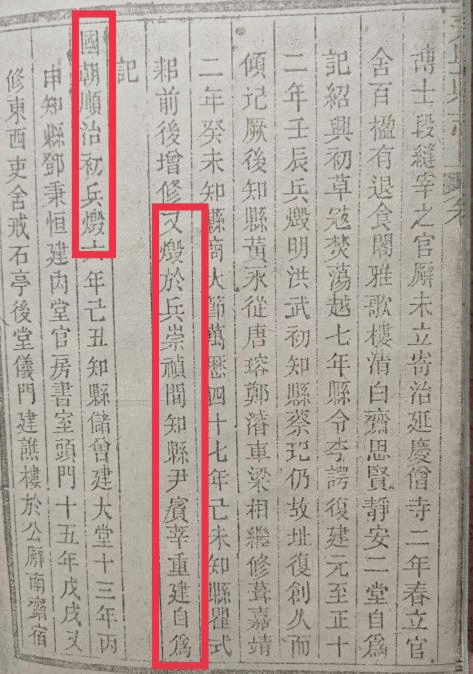 博士段縫宰之官廨未立寄治延慶僧寺二年春立官
舍百楹有退食閣雅歌樓清白齋思賢靜安二堂自爲
記紹興初草寇焚蕩越七年縣令李諤復建元至正十
二年壬辰兵燬明洪武初知縣蔡玘仍故址復創久而
傾圮厥後知縣黃永從唐瑢鄭濬車梁相繼修葺嘉靖
二年癸未知縣喬大節萬曆四十七年己未知縣瞿式
耜前後增修又燬於兵崇禎間知縣尹賓莘重建自爲
記
國朝順治初兵燬六年己丑知縣儲曾建大堂十三年丙
申知縣鄧秉恒建內堂官房書室頭門十五年戊戌又
修東西吏舍戒石亭後堂儀門建譙樓於公廨南齋宿